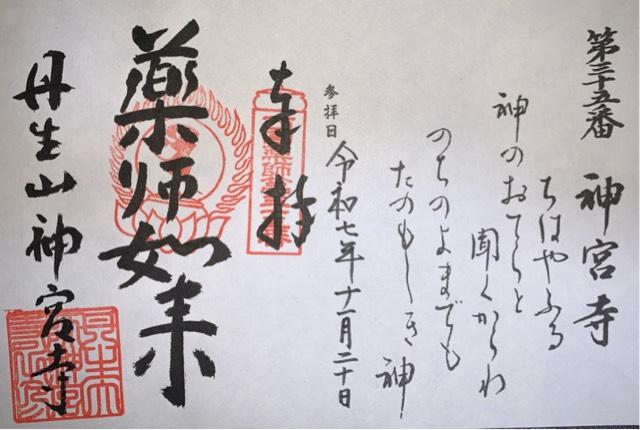 第三十五番 神宮寺
ちはやふる
神のおてらと
聞くからわ
のちのよまでも
たのもしき神
参拝日 令和七年十一月二十日
奉拝
薬師如来
丹生山神宮寺